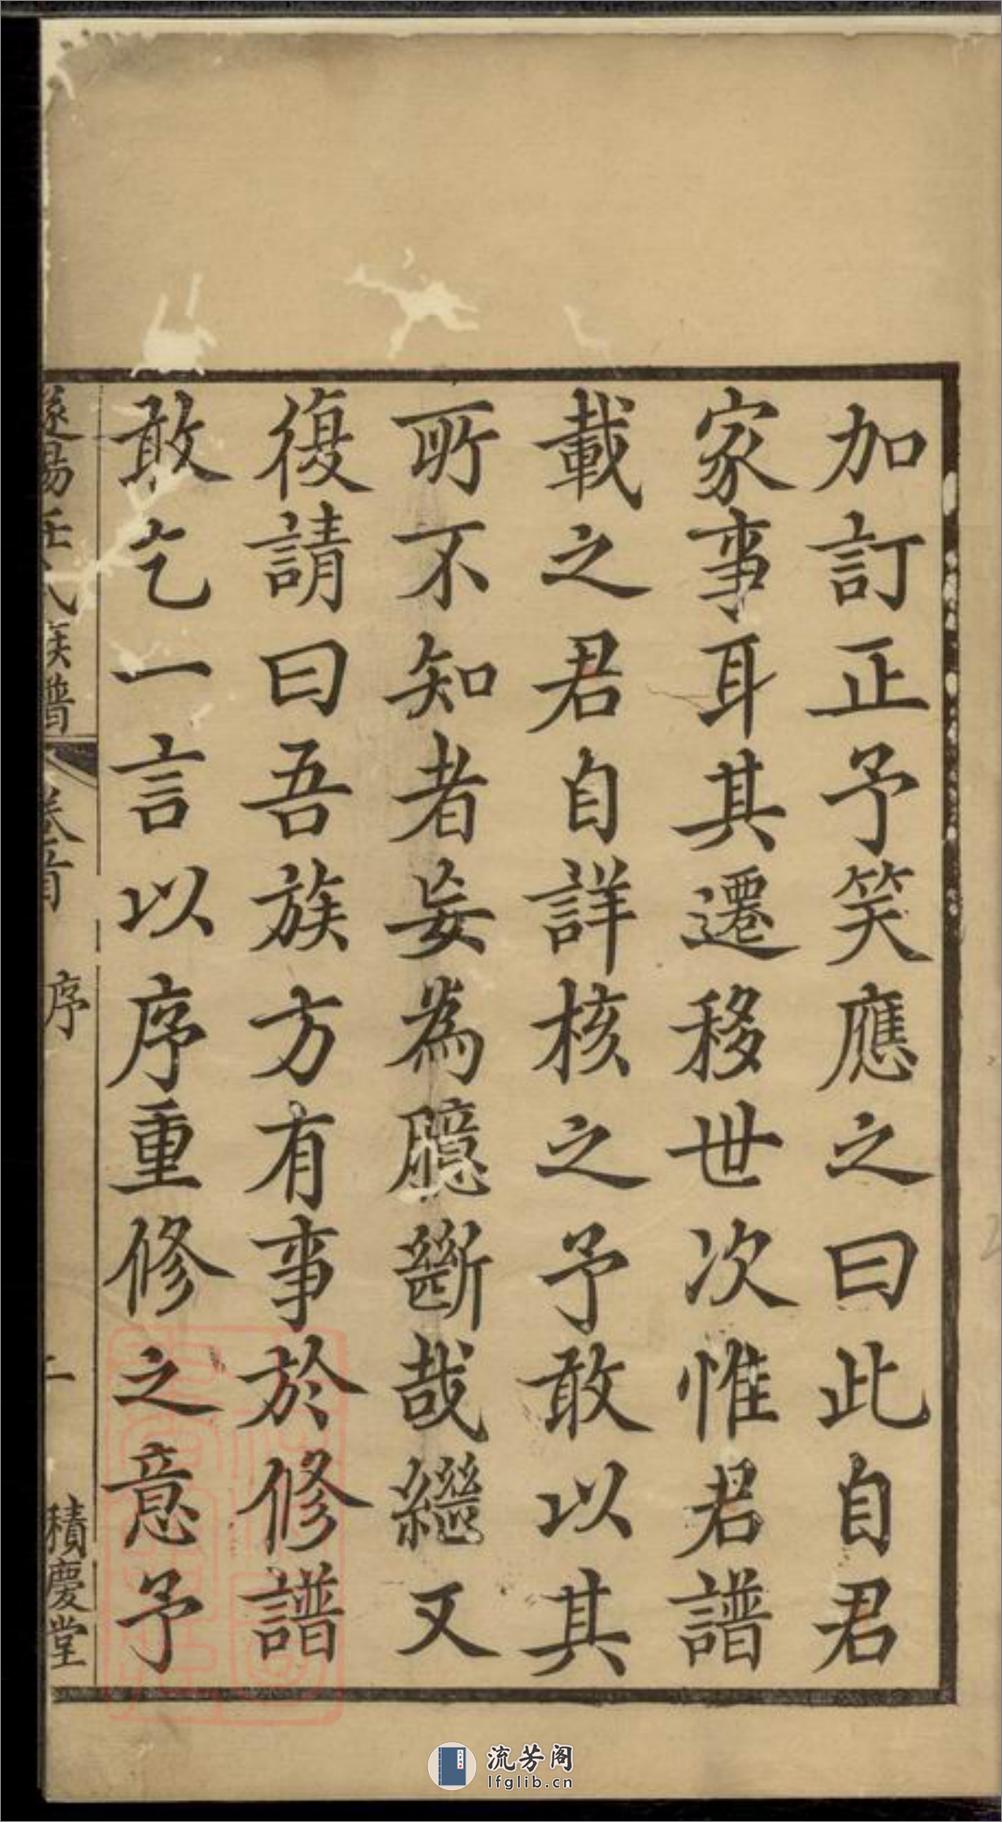 加訂正予笑應之曰此自君
家事耳其遷移世次惟君譜
載之君自詳核之予敢以其
所不知者妄為臆斷哉繼又
復請曰吾族方有事於修譜
敢乞一言以序重修之意予
遂陽任氏族譜
卷首
序
積慶堂
流芳阁
lfglib.cn